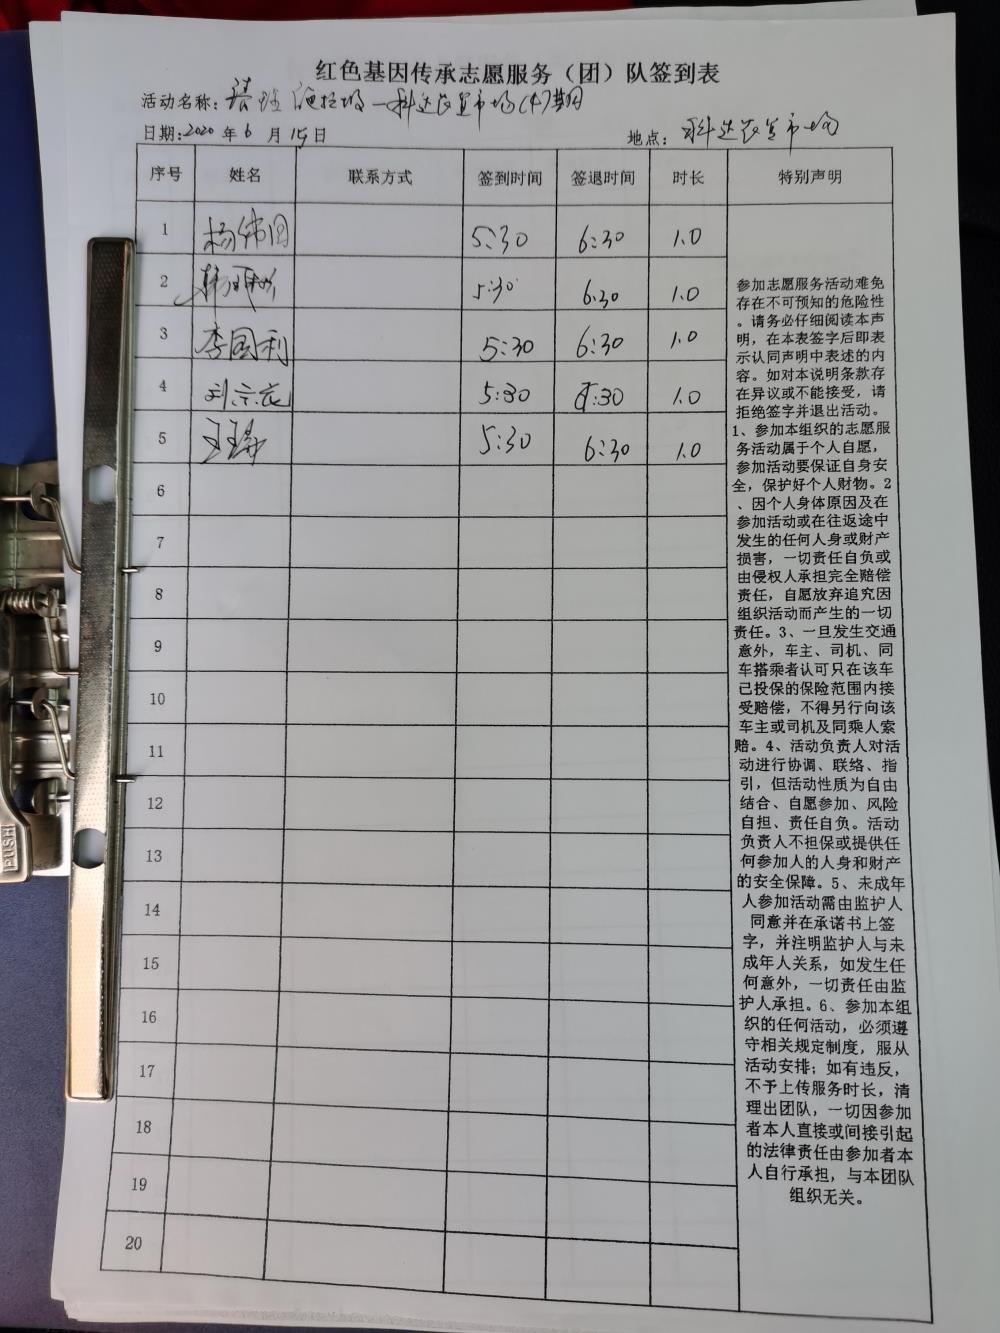 红色基因传承志愿服务（团）队签到表
活动名称：
日期:2020 年 6 月 15 日 地点： 科达农贸市场
序号 姓名 联系方式 签到时间 签退时间 时长 特别声明
1 杨伟国 5:30 6:30 1.0
2 5:30 6:30 1.0
3 李国利 5:30 6:30 1.0
4 5:30 :30 1.0
5 5:30 6:30 1.0
6
7
8
9
10
11
12
13
14
15
16
17
18
19
20
参加志愿服务活动难免
存在不可预知的危险性
。请务必仔细阅读本声
明，在本表签字后即表
示认同声明中表述的内
容。如对本说明条款存
在异议或不能接受，请
拒绝签字并退出活动。
1、参加本组织的志愿服
务活动属于个人自愿，
参加活动要保证自身安
全，保护好个人财物。2
、因个人身体原因及在
参加活动或在往返途中
发生的任何人身或财产
损害，一切责任自负或
由侵权人承担完全赔偿
责任，自愿放弃追究因
组织活动而产生的一切
责任。3、一旦发生交通
意外，车主、司机、同
车搭乘者认可只在该车
已投保的保险范围内接
受赔偿，不得另行向该
车主或司机及同乘人索
赔。4、活动负责人对活
动进行协调、联络、指
引，但活动性质为自由
结合、自愿参加、风险
自担、责任自负。活动
负责人不担保或提供任
何参加人的人身和财产
的安全保障。5、未成年
人参加活动需由监护人
同意并在承诺书上签
字，并注明监护人与未
成年人关系，如发生任
何意外，一切责任由监
护人承担。6、参加本组
织的任何活动，必须遵
守相关规定制度，服从
活动安排；如有违反，
不予上传服务时长，清
理出团队，一切因参加
者本人直接或间接引起
的法律责任由参加者本
人自行承担，与本团队
组织无关。
PUSH